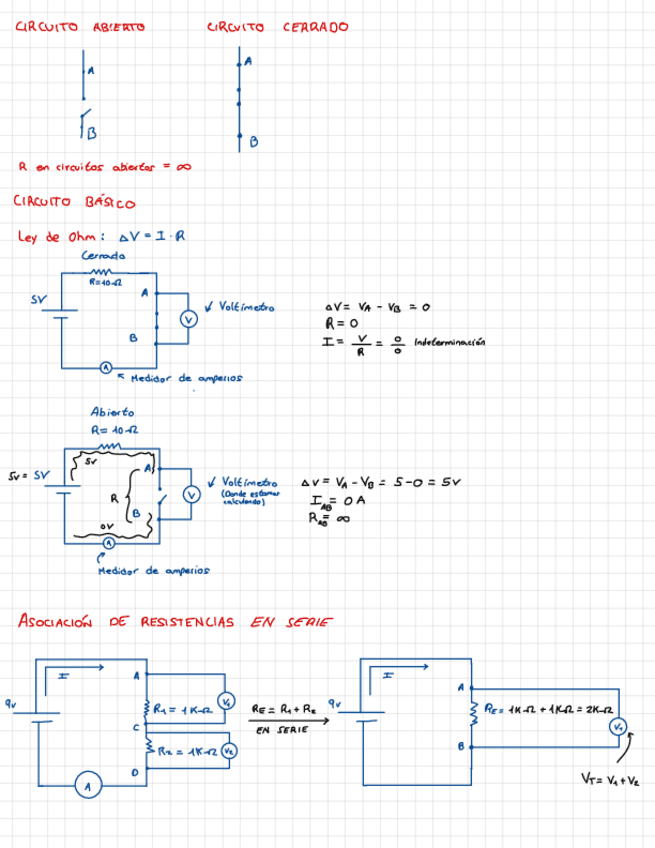 CIRCUITO ABIERTO
CIRCUITO CERRADO
A
B
A
B
R en circuitos abiertos = ∞
CIRCUITO BÁSICO
Ley de Ohm: ΔV = I · R
Cerrado
R=10Ω
5V
A
B
V
Voltímetro
A
Medidor de amperios
ΔV = VA - VB = 0
R = 0
I = V/R = 0/0 Indeterminación
Abierto
R= 10Ω
5v = 5V
5v
A
R
B
0V
V
Voltímetro
(Donde estamos
calculando)
A
Medidor de amperios
ΔV = VA - VB = 5 - 0 = 5V
IAB = 0 A
RAB = ∞
ASOCIACIÓN DE RESISTENCIAS EN SERIE
I
9v
A
R1 = 1KΩ
V1
C
R2 = 1KΩ
V2
D
A
RE = R1 + R2
EN SERIE
I
9v
A
RE= 1KΩ + 1KΩ = 2KΩ
VT
B
VT = V1 + V2